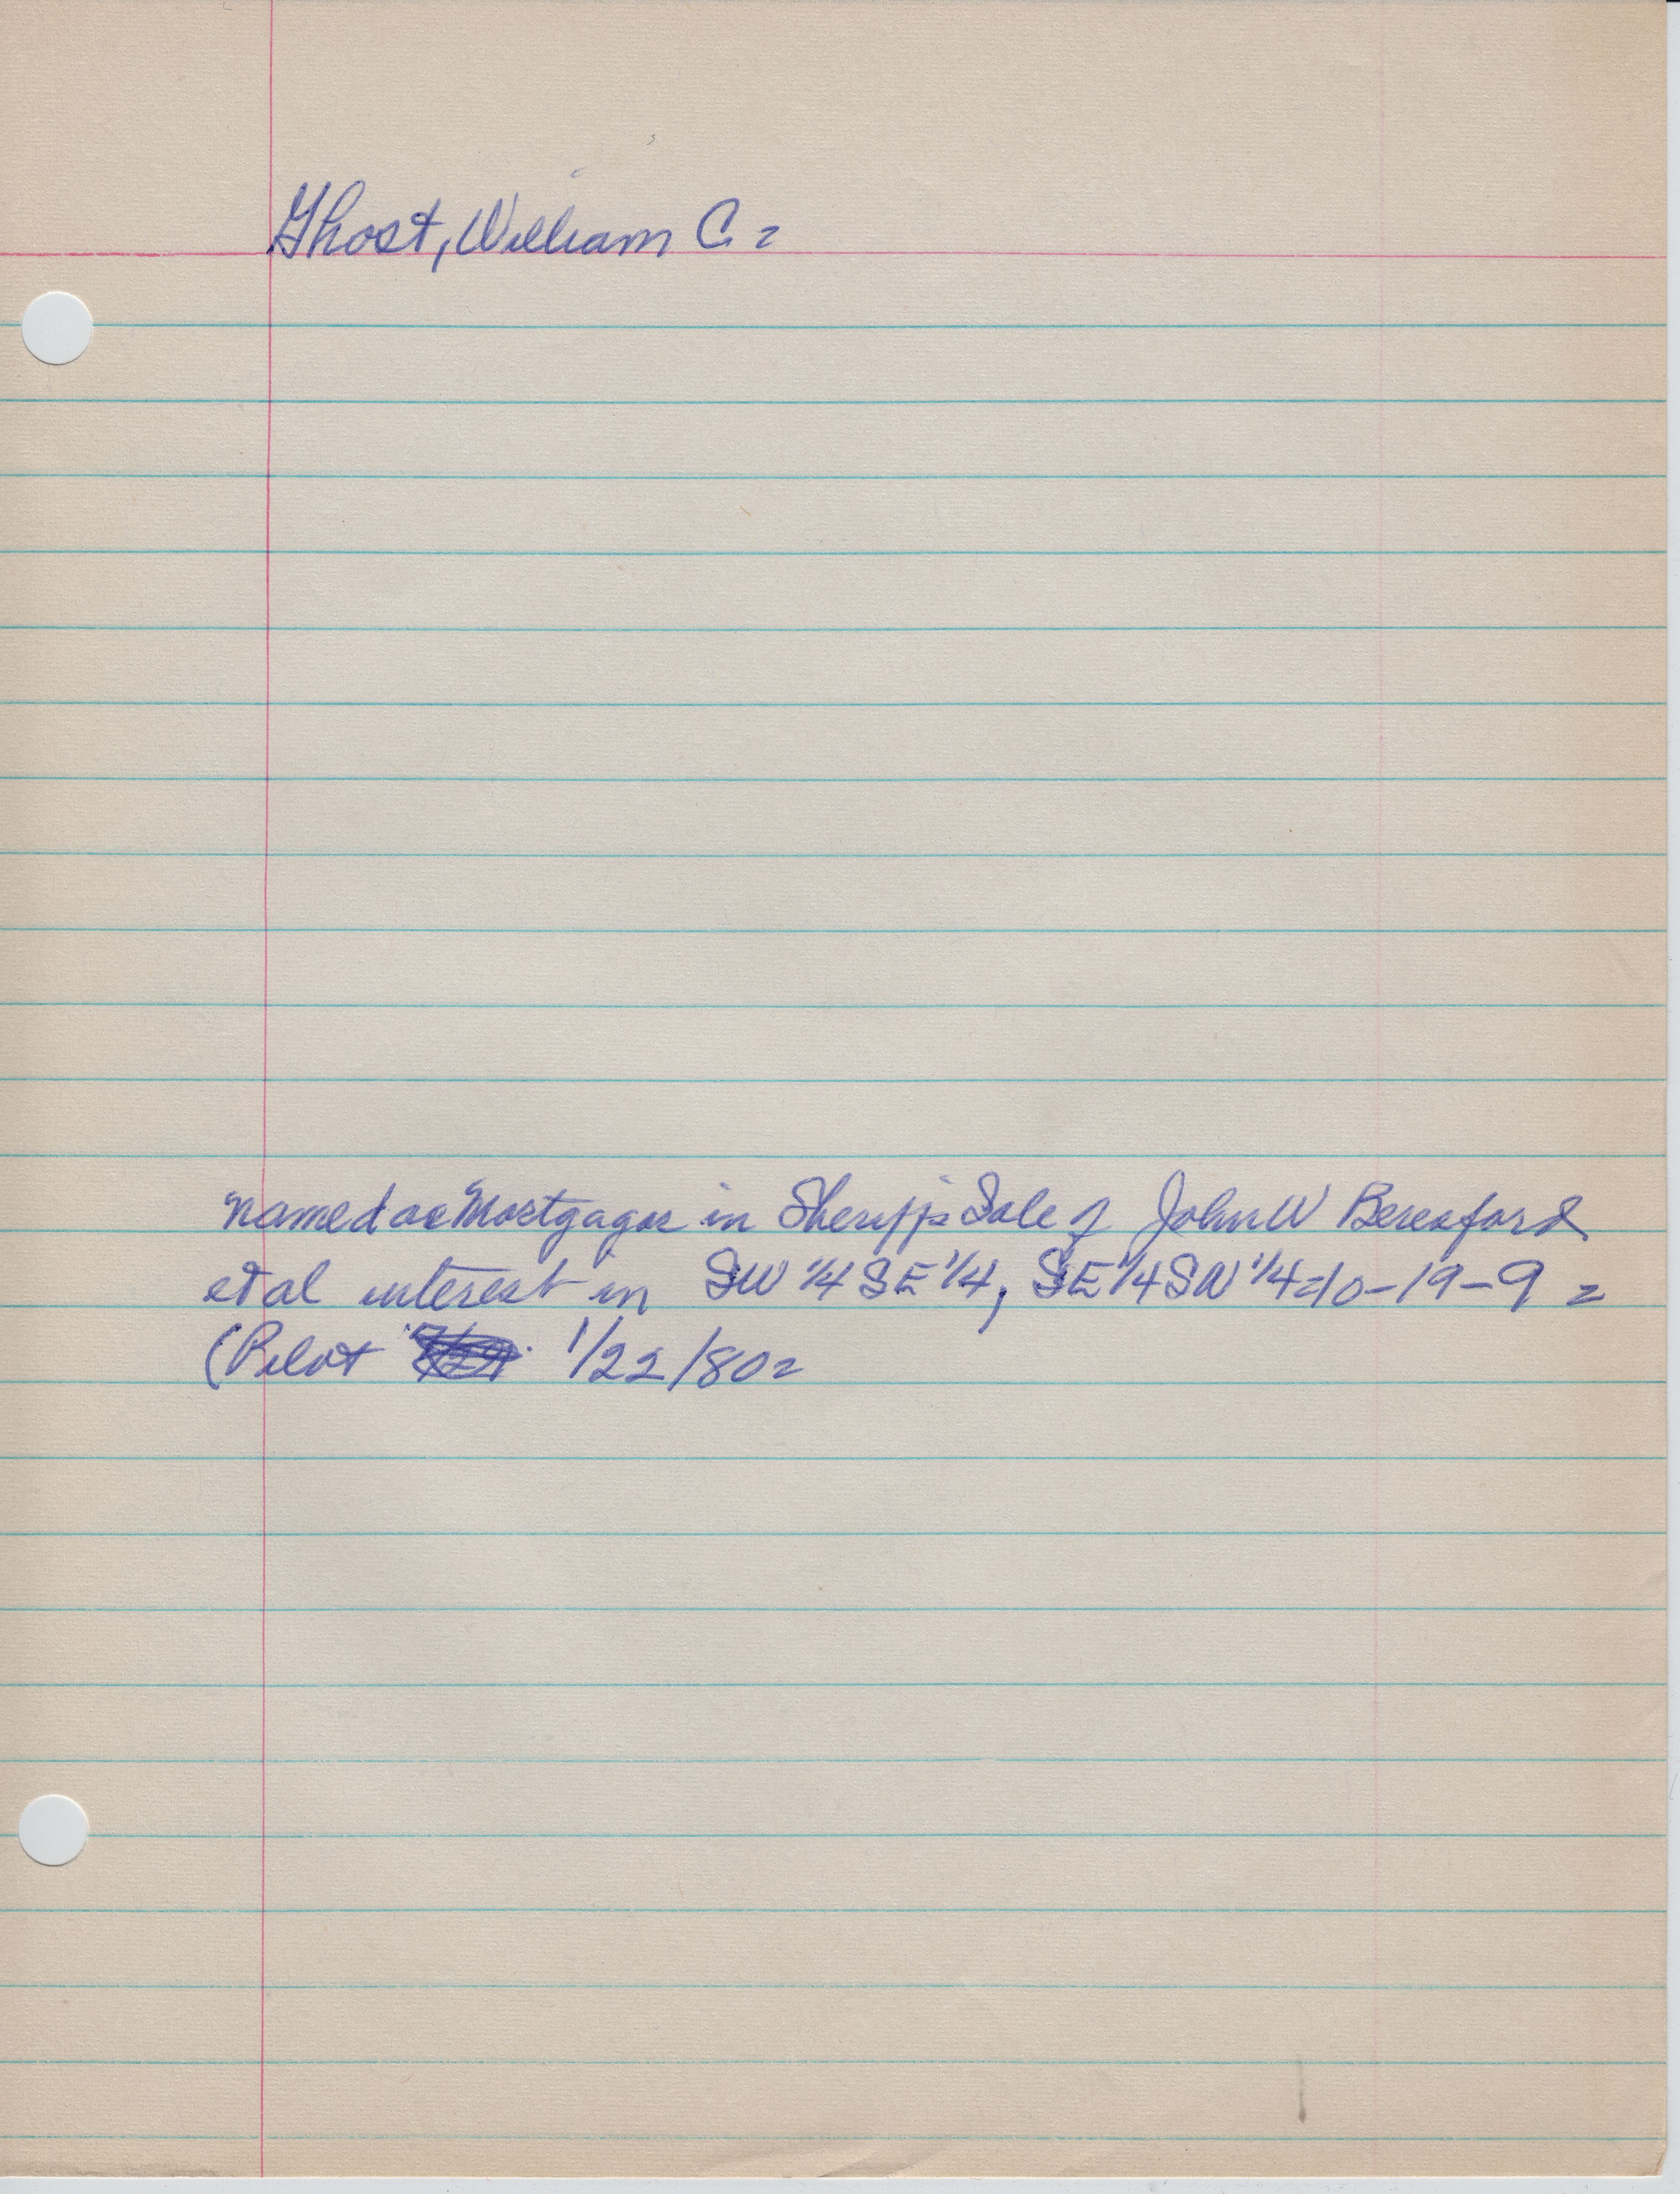 Ghost, William C. =
named as Mortgagor in Sheriff's Sale of John W Beresford
et al interest in SW 1/4 SE 1/4, SE 1/4 SW 1/4 = 10-19-9 =
(Pilot 1/22/80 =